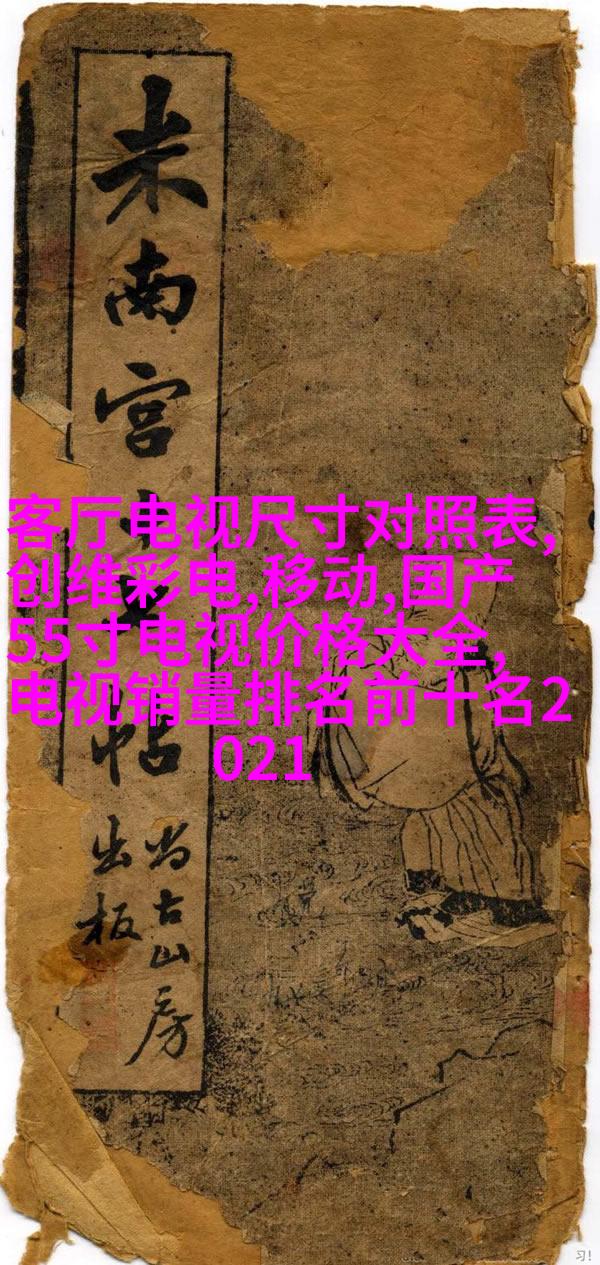 米南宫
帖
尚古山房
出板
客厅电视尺寸对照表,
创维彩电,移动,国产
55寸电视价格大全,
电视销量排名前十名2
021
习!